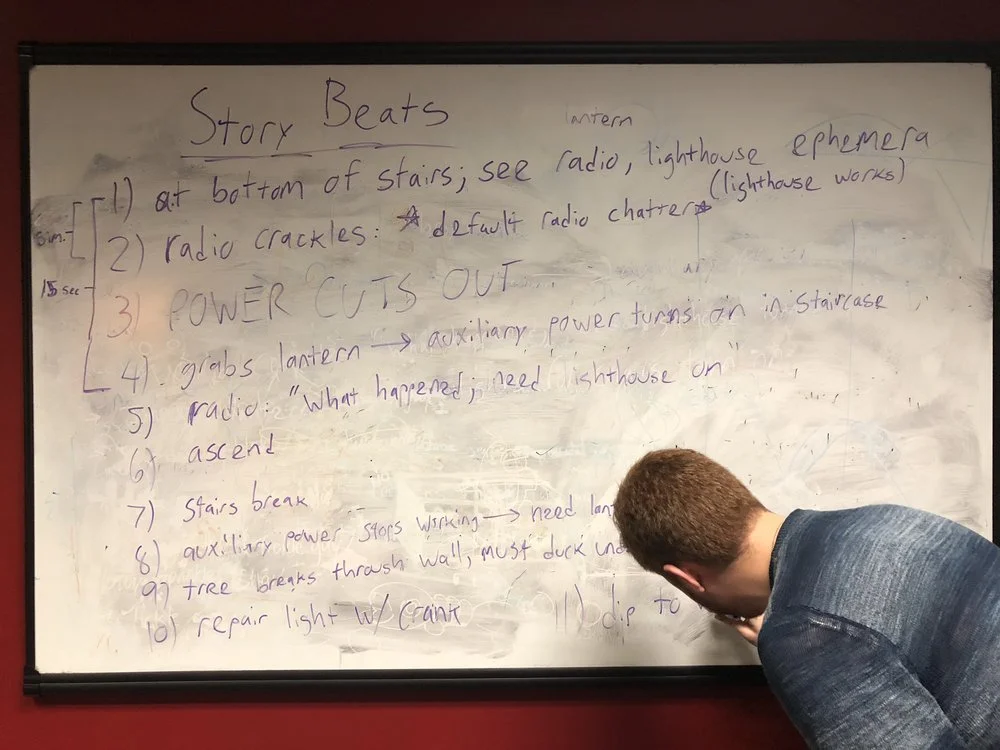 Story Beats
lantern
1) at bottom of stairs; see radio, lighthouse ephemera
(lighthouse works)
2) radio crackles: ☆ default radio chatter ☆
3) POWER CUTS OUT
4) grabs lantern → auxiliary power turns on in staircase
5) radio: "What happened; need lighthouse on"
6) ascend
7) stairs break
8) auxiliary power stops working → need
9) tree breaks through wall, must duck
10) repair light w/ crank
11) dip to
15 sec